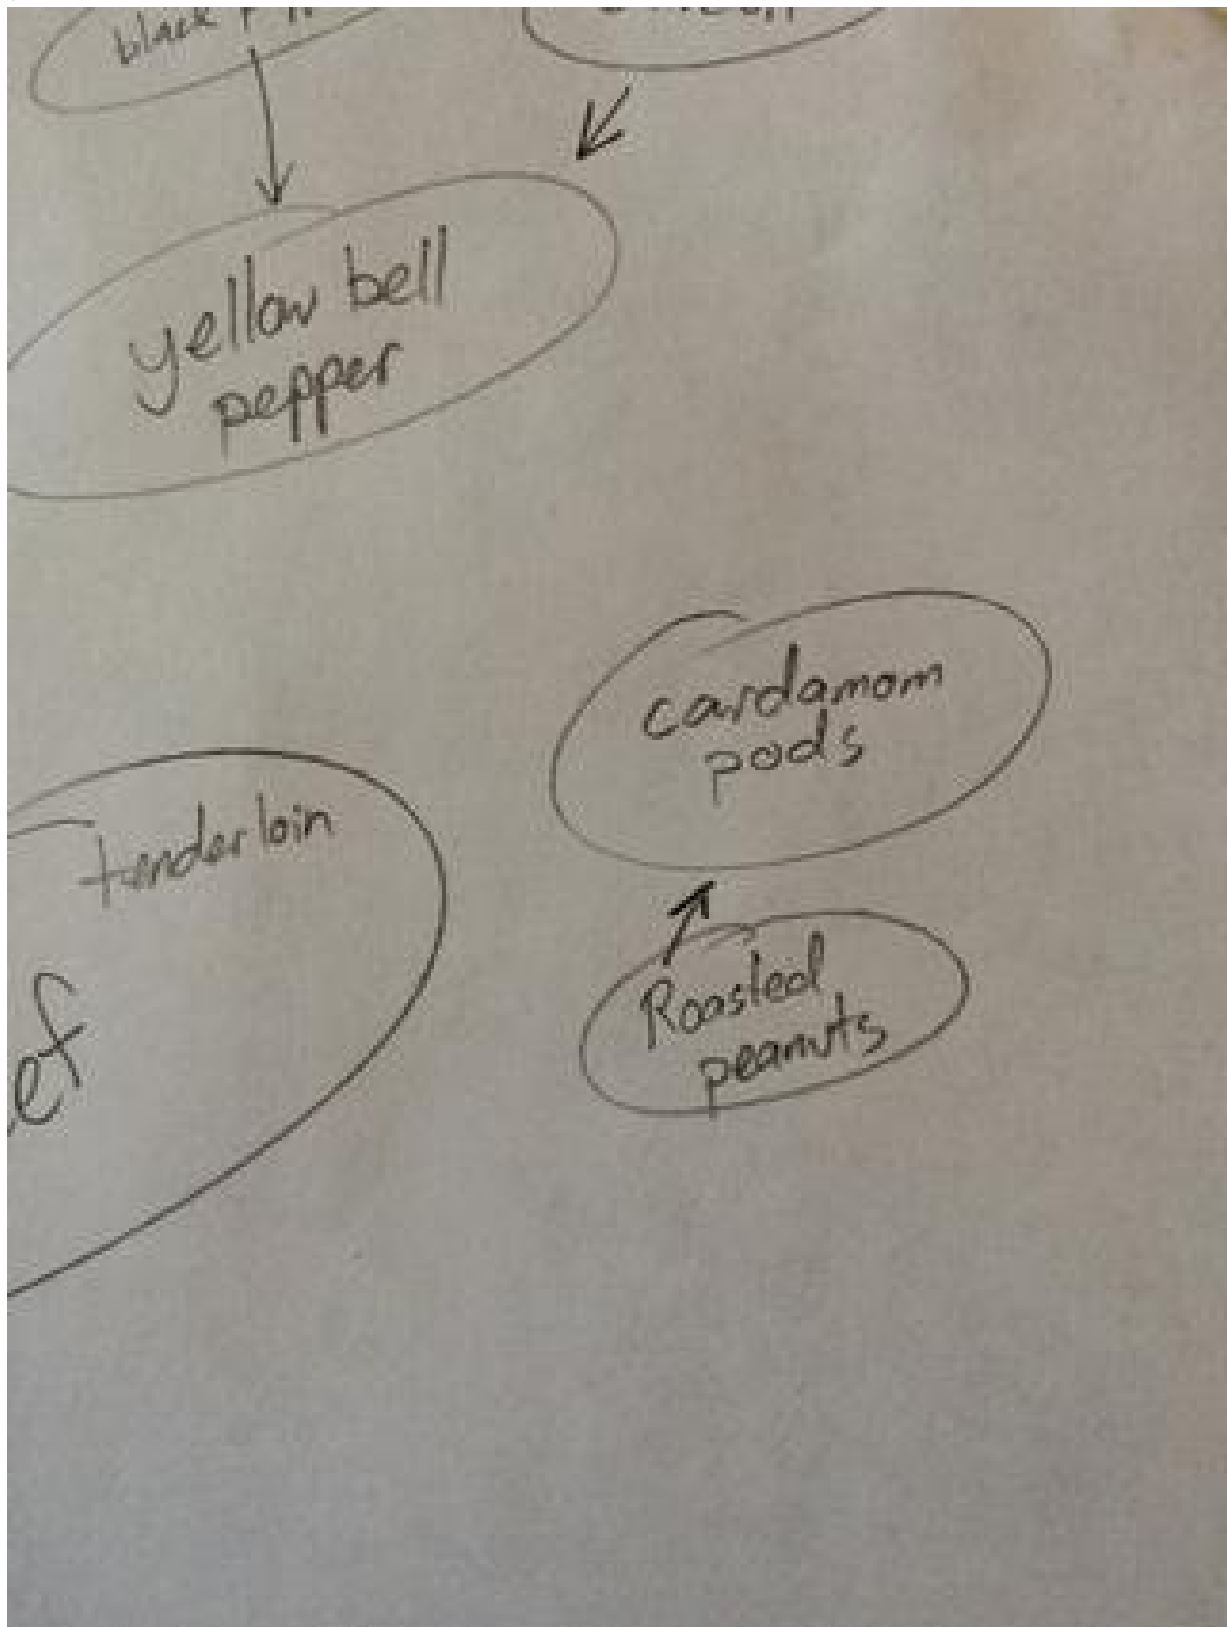 black
yellow bell
pepper
cardamom
pods
tenderloin
Roasted
peanuts